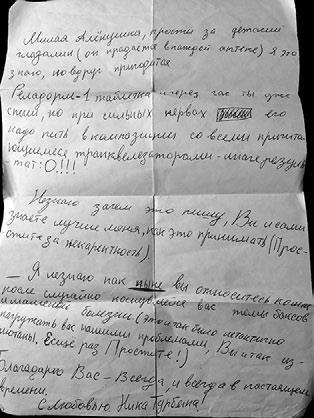 Милая Алёнушка, прости за детский
гладалин (он продаётся в каждой аптеке) я это
знаю, но вдруг пригодится
Реладорм-1 таблетка и через час ты уже
спишь, но при сильных нервах его
надо пить в композиции со всеми причита-
ющимися транквелезаторами-иначе резуль-
тат: О!!!!
Незнаю зачем это пишу, Вы и сами
знаете лучше меня, как это принимать (Прос-
тите за некарентность)
— Я незнаю как ныне вы относитесь ко мне
после случайно коснувшейся вас темы боксов
и маминой болезни (это и так было нетактично
нагружать вас нашими проблемами, Вы и так из-
мотаны. Еще раз Простите!)
Благодарю Вас-Всегда, и всегда в настоящем
времени.
С Любовью Ника Турбина